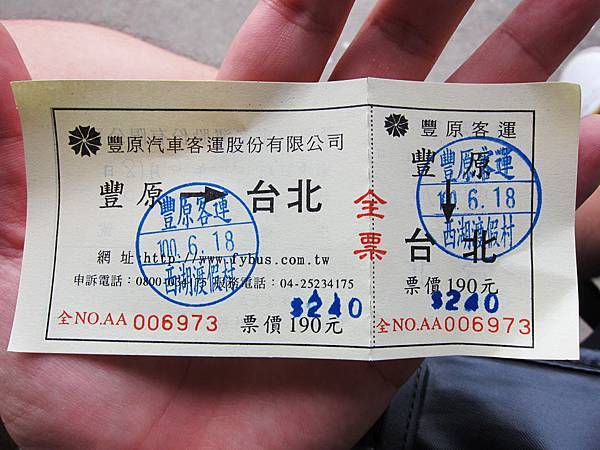 豐原汽車客運股份有限公司
豐原 → 台北
豐原客運
100.6.18
西湖渡假村
網址http://www.fybus.com.tw
申訴電話：0800-034175 服務電話：04-25234175
$240
全NO.AA 006973 票價190元
全票
豐原客運
豐原
↓
台北
豐原客運
100.6.18
西湖渡假村
票價190元
$240
全NO.AA006973